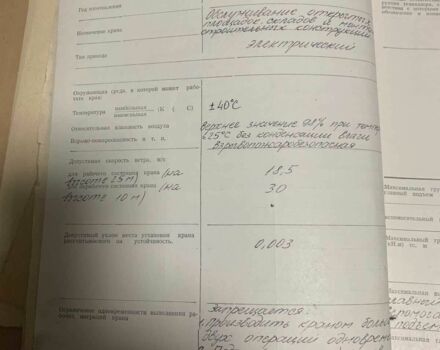 Год изготовления
Назначение крана
Обслуживание открытых
площадок, складов и монтаж
строительных конструкций
Тип привода
Электрический
Окружающая среда, в которой может рабо-
тать кран:
Температура наибольшая / наименьшая (К ( С)
± 40°С
Относительная влажность воздуха
Верхнее значение 98% при темпер
+25°С без конденсации влаги
Взрыво-пожароопасность и т. п.
Взрывопожаробезопасная
Допустимая скорость ветра, м/с
для рабочего состояния крана (на
высоте 25 м)
18,5
для нерабочего состояния крана (на
высоте 10 м)
30
Допустимый уклон места установки крана
рассчитываемого на устойчивость.
0,003
Ограничение одновременности выполнения ра-
бочих операций крана
Запрещается:
производить краном более
двух операций одноврем
Максимальная гру
Максимальный гру